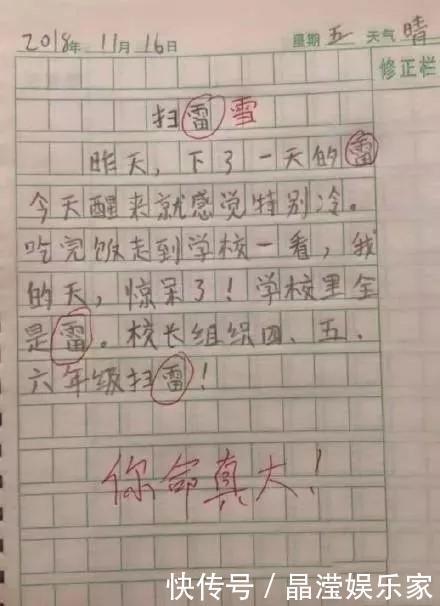 2018年 11月 16日 星期 五 天气 晴
修正栏
扫雷雪
昨天，下了一天的雷
今天醒来就感觉特别冷。
吃完饭走到学校一看，我
的天，惊呆了！学校里全
是雷。校长组织四、五、
六年级扫雷！
你命真大！
快传号 / 晶滢娱乐家